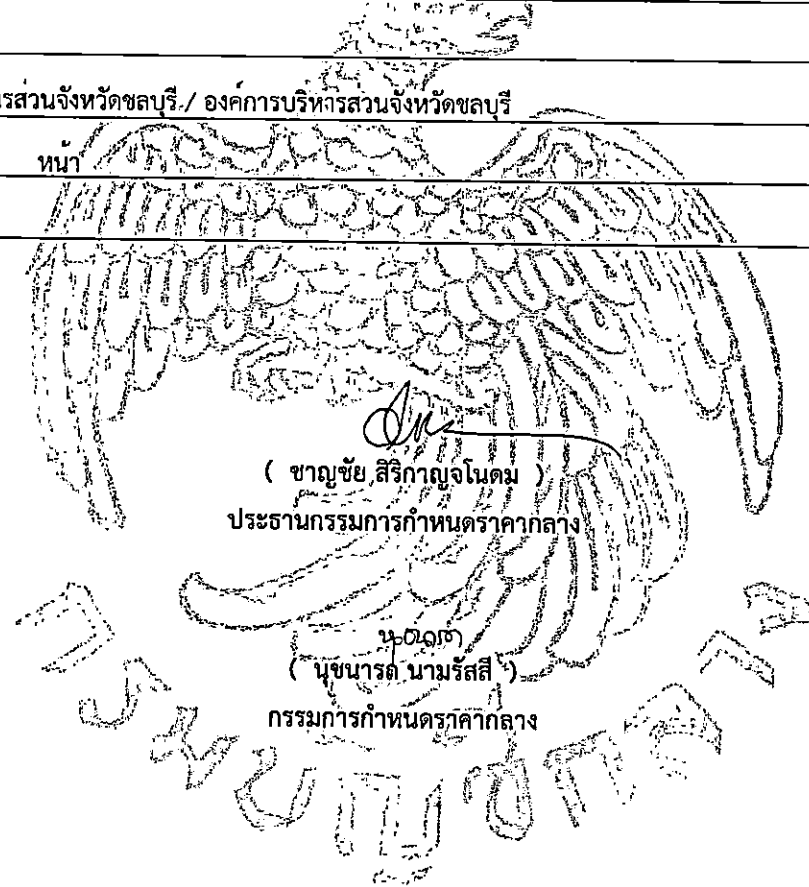 รส่วนจังหวัดชลบุรี / องค์การบริหารส่วนจังหวัดชลบุรี
หน้า
( ชาญชัย สิริกาญจโนดม )
ประธานกรรมการกำหนดราคากลาง
นุชนารถ
( นุชนารถ นามรัสสี )
กรรมการกำหนดราคากลาง
กรมบัญชีกลาง